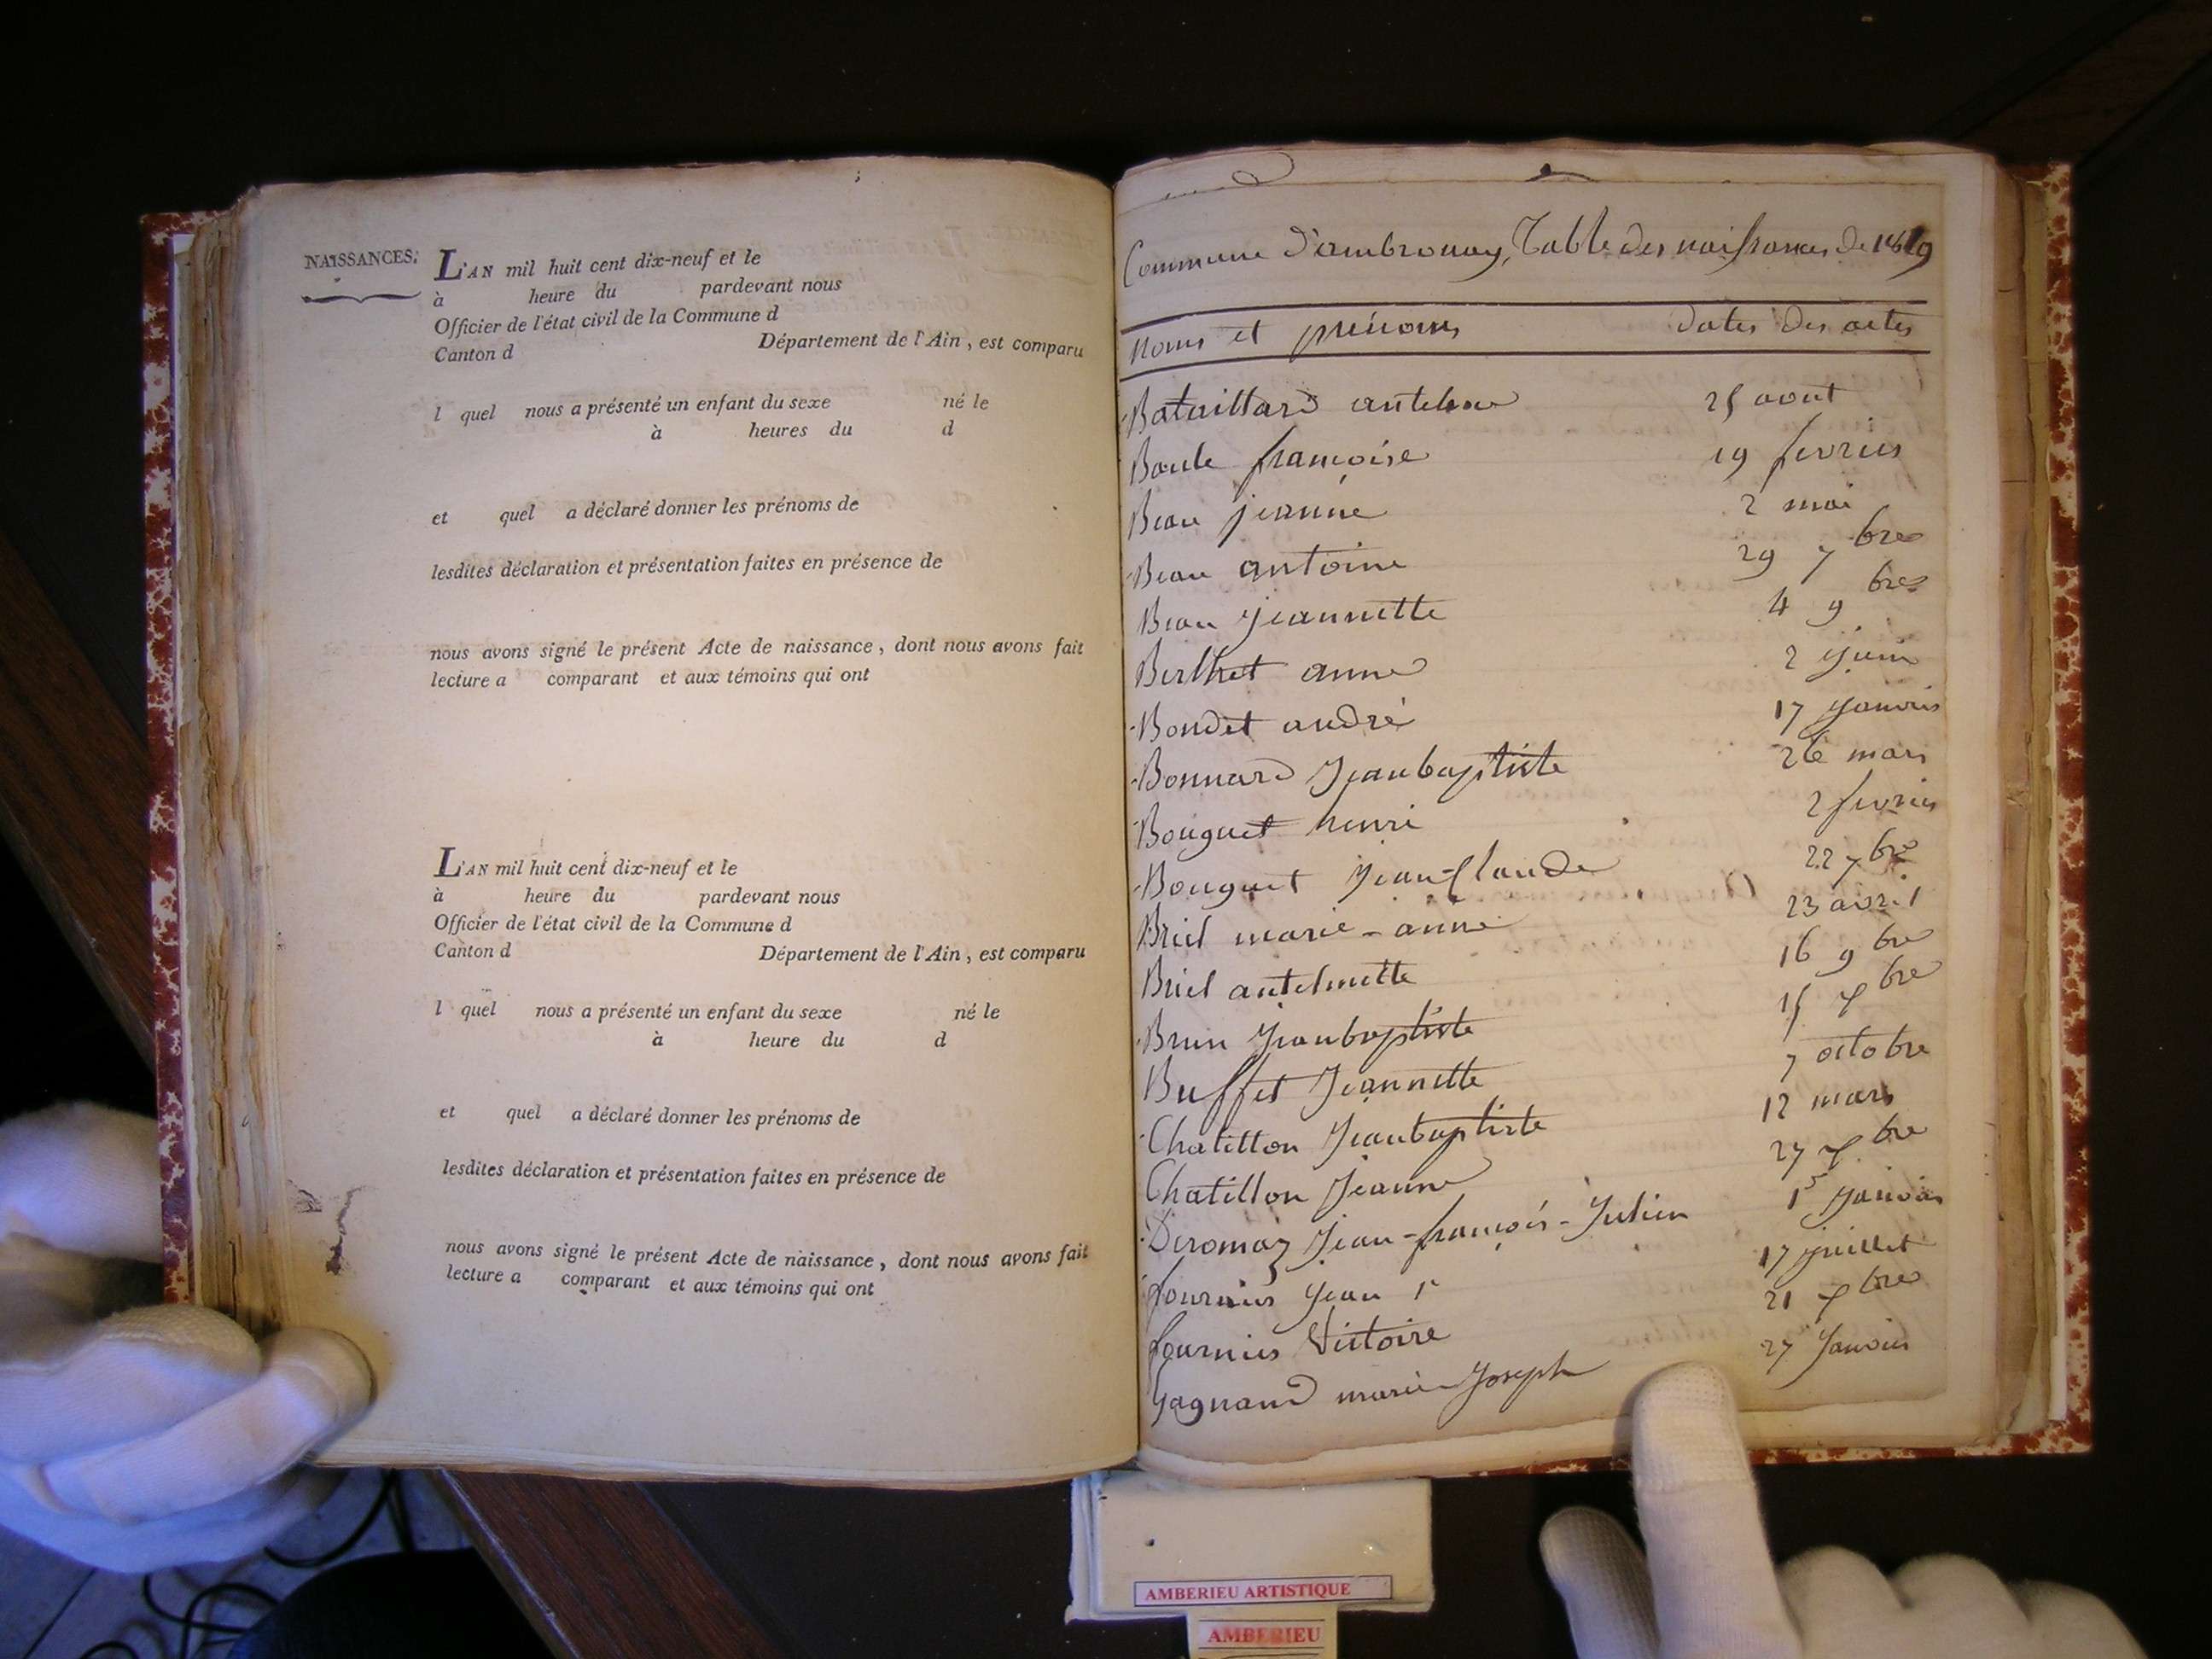 NAISSANCES.
L'AN mil huit cent dix-neuf et le
à heure du pardevant nous
Officier de l'état civil de la Commune d
Canton d Département de l'Ain, est comparu
l quel nous a présenté un enfant du sexe né le
à heures du d
et quel a déclaré donner les prénoms de
lesdites déclaration et présentation faites en présence de
nous avons signé le présent Acte de naissance, dont nous avons fait
lecture a comparant et aux témoins qui ont
L'AN mil huit cent dix-neuf et le
à heure du pardevant nous
Officier de l'état civil de la Commune d
Canton d Département de l'Ain, est comparu
l quel nous a présenté un enfant du sexe né le
à heure du d
et quel a déclaré donner les prénoms de
lesdites déclaration et présentation faites en présence de
nous avons signé le présent Acte de naissance, dont nous avons fait
lecture a comparant et aux témoins qui ont
Commune d'ambronay, Table des naissances de 1819
Noms et prénoms dates des actes
Bataillard antelme 25 aout
Baule françoise 19 fevrier
Beau jeanne 2 mai
Beau antoine 29 7bre
Beau Jeannette 4 9bre
Berthet anne 2 Juin
Bondet andré 17 Janvier
Bonnard Jeanbaptiste 26 mars
Bouguet henri 2 fevrier
Bouguet Jean-Claude 22 7bre
Briel marie-anne 23 avril
Briel antelmette 16 9bre
Brun Jeanbaptiste 15 7bre
Buffet Jeannette 7 octobre
Chatillon Jeanbaptiste 12 mars
Chatillon Jeanne 27 7bre
Deromaz Jean-françois-Julien 1er Janvier
fournier Jean 17 juillet
fournier Victoire 21 7bre
Gagnand marie-Joseph 27 Janvier
AMBERIEU ARTISTIQUE
AMBERIEU